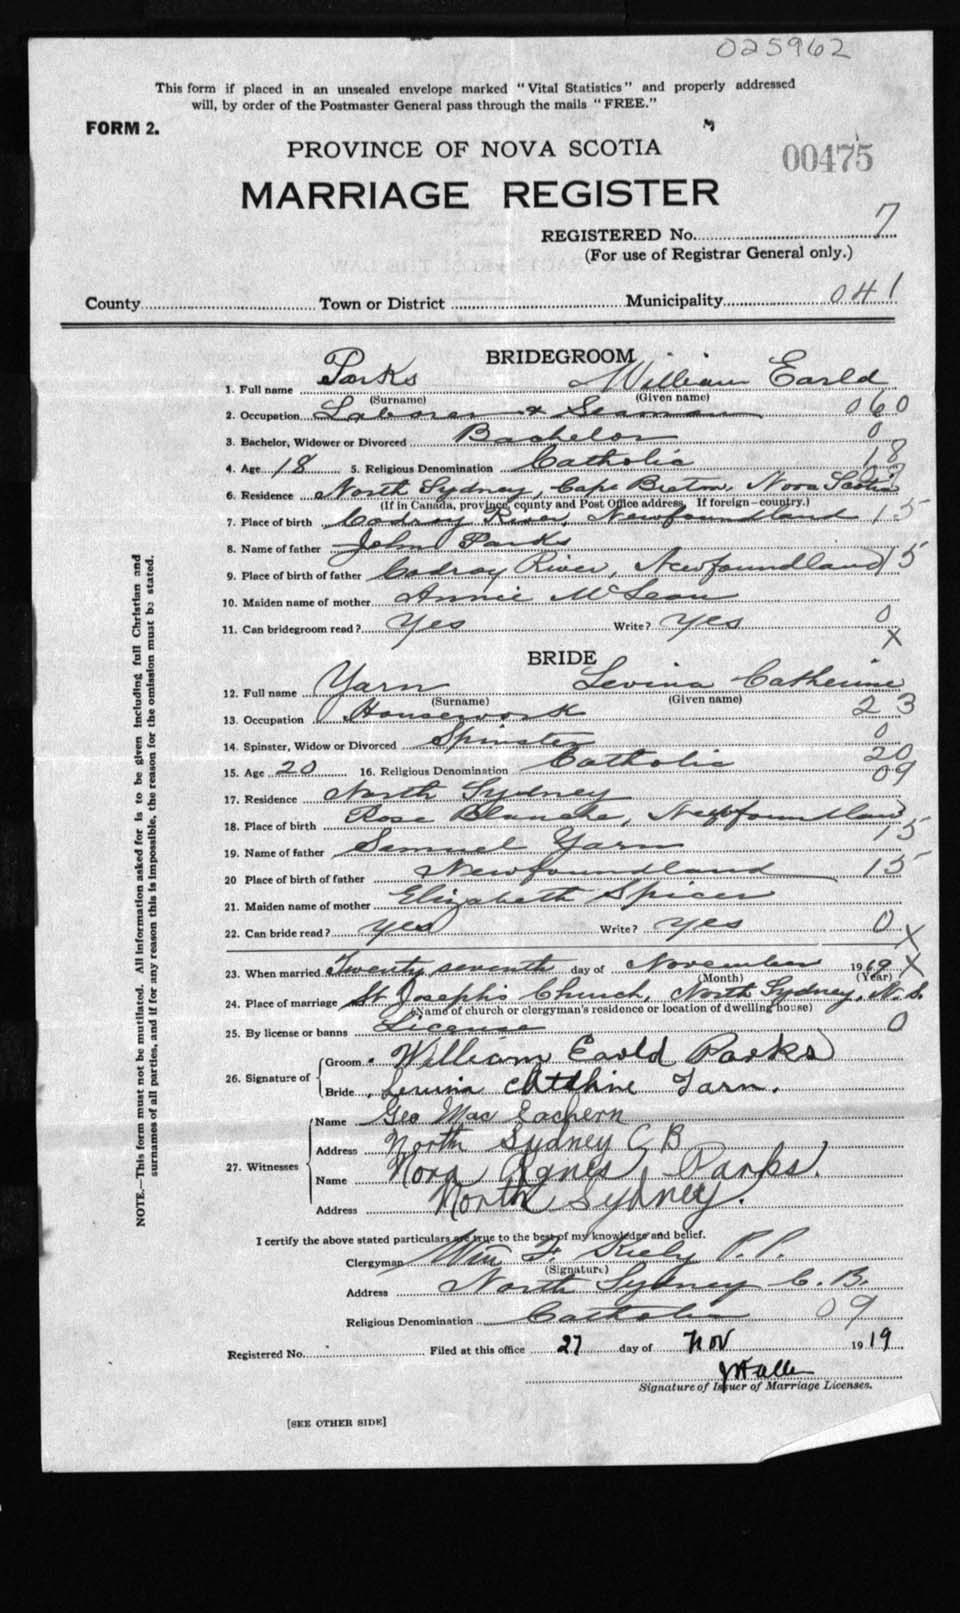 025962
This form if placed in an unsealed envelope marked "Vital Statistics" and properly addressed
will, by order of the Postmaster General pass through the mails "FREE."
FORM 2.
PROVINCE OF NOVA SCOTIA
00475
MARRIAGE REGISTER
REGISTERED No. 7
(For use of Registrar General only.)
County Town or District Municipality 041
BRIDEGROOM
1. Full name Parks William Earld
(Surname) (Given name)
2. Occupation Laborer & Seaman 060
3. Bachelor, Widower or Divorced Bachelor 0
4. Age 18 5. Religious Denomination Catholic 18
6. Residence North Sydney, Cape Breton, Nova Scotia 09
(If in Canada, province, county and Post Office address, If foreign—country.)
7. Place of birth Codroy River, Newfoundland 15
8. Name of father John Parks
9. Place of birth of father Codroy River, Newfoundland 15
10. Maiden name of mother Annie McLean
11. Can bridegroom read? Yes Write? Yes 0
X
BRIDE
12. Full name Yarn Levina Catherine
(Surname) (Given name)
13. Occupation Housework 23
14. Spinster, Widow or Divorced Spinster 0
15. Age 20 16. Religious Denomination Catholic 20
17. Residence North Sydney 09
18. Place of birth Rose Blanche, Newfoundland
19. Name of father Samuel Yarn 15
20 Place of birth of father Newfoundland 15
21. Maiden name of mother Elizabeth Spicer
22. Can bride read? yes Write? yes 0 X
23. When married Twenty seventh day of November 1919 X
(Month) (Year)
24. Place of marriage St Joseph's Church, North Sydney, N.S.
(Name of church or clergyman's residence or location of dwelling house)
25. By license or banns License 0
26. Signature of Groom William Earld Parks
Bride Levina Chthhine Yarn.
27. Witnesses Name Geo Mac Eachern
Address North Sydney C B
Name Nora Agnes Parks.
Address North Sydney.
I certify the above stated particulars are true to the best of my knowledge and belief.
Clergyman Wm F. Kiely P.P.
(Signature)
Address North Sydney C.B.
Religious Denomination Catholic 09
Registered No. Filed at this office 27 day of Nov 1919
Signature of Issuer of Marriage Licenses.
[SEE OTHER SIDE]
NOTE.—This form must not be mutilated. All information asked for is to be given including full Christian and
surnames of all parties, and if for any reason this is impossible, the reason for the omission must be stated.